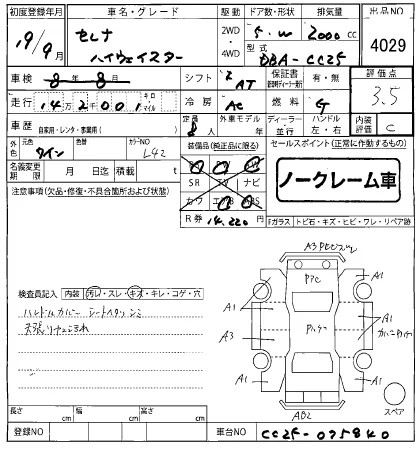 初度登録年月 車名・グレード 駆動 ドア数・形状 排気量 出品NO
19/9月 セレナ 2WD・4WD 5.W 2000cc 4029
ハイウェイスター 型式 DBA-CC25
車検 8年8月 シフト AT 保証書 有・無 評価点 3.5
走行 142001 キロ マイル 冷房 AC 燃料 G
車歴 自家用・レンタ・事業用( ) 定員 8人 外車モデル 年 ディーラー 並行 ハンドル 左・右 内装評価 C
外色 元色 ワイン 色替 カラーNO L42 装備品(純正品に限る) セールスポイント(正常に作動するもの)
名義変更期限 月 日 積載 t SR TV ナビ ノークレーム車
注意事項(欠品・修復・不具合箇所および状態) カワ エアB ABS
R券 14.220円 Fガラス トビ石・キズ・ヒビ・ワレ・リペア跡
A3
A1 A1
検査員記入 内装 汚レ・スレ・キズ・キレ・コゲ・穴
ハンドルカバー シートヘタリ シミ
A1 A1
A3
A1 A1
スペア
AB2
長さ cm 幅 cm 高さ cm
登録NO 車台NO CC25-075840